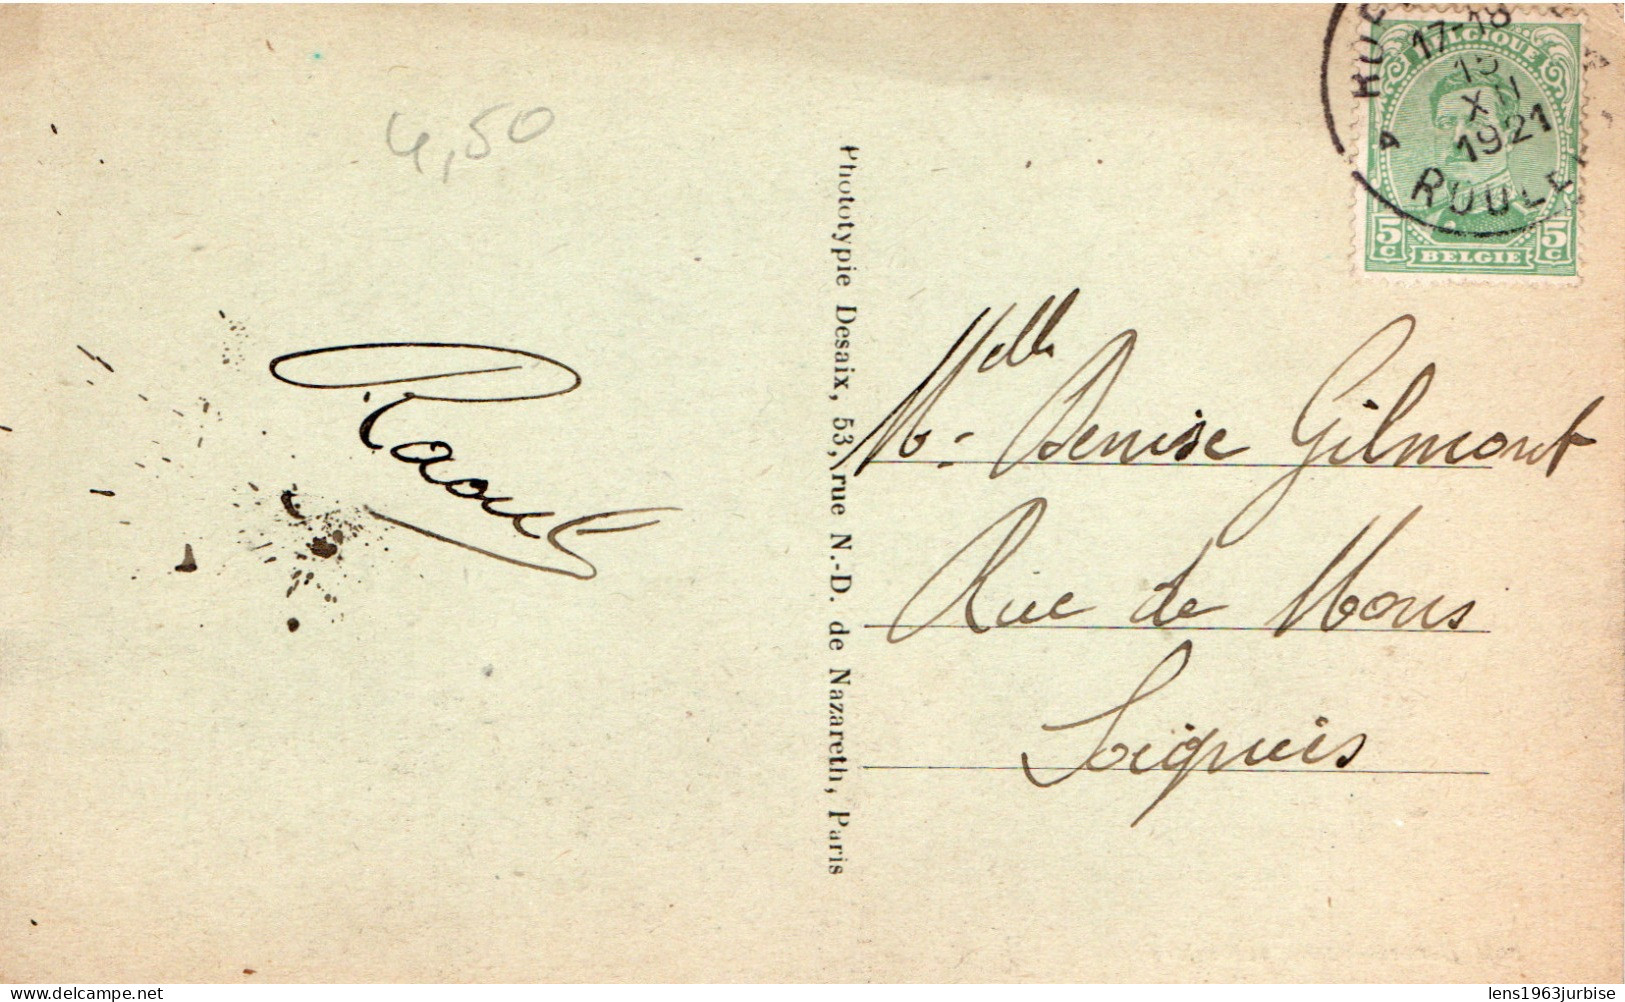 4,50
Raoul
Phototypie Desaix, 53, rue N.-D. de Nazareth, Paris
17-18
XII
1921
BELGIQUE
5c 5c
BELGIE
Melle
Denise Gilmont
Rue de Mons
Soignies
Delcampe.net
lens1963jurbise